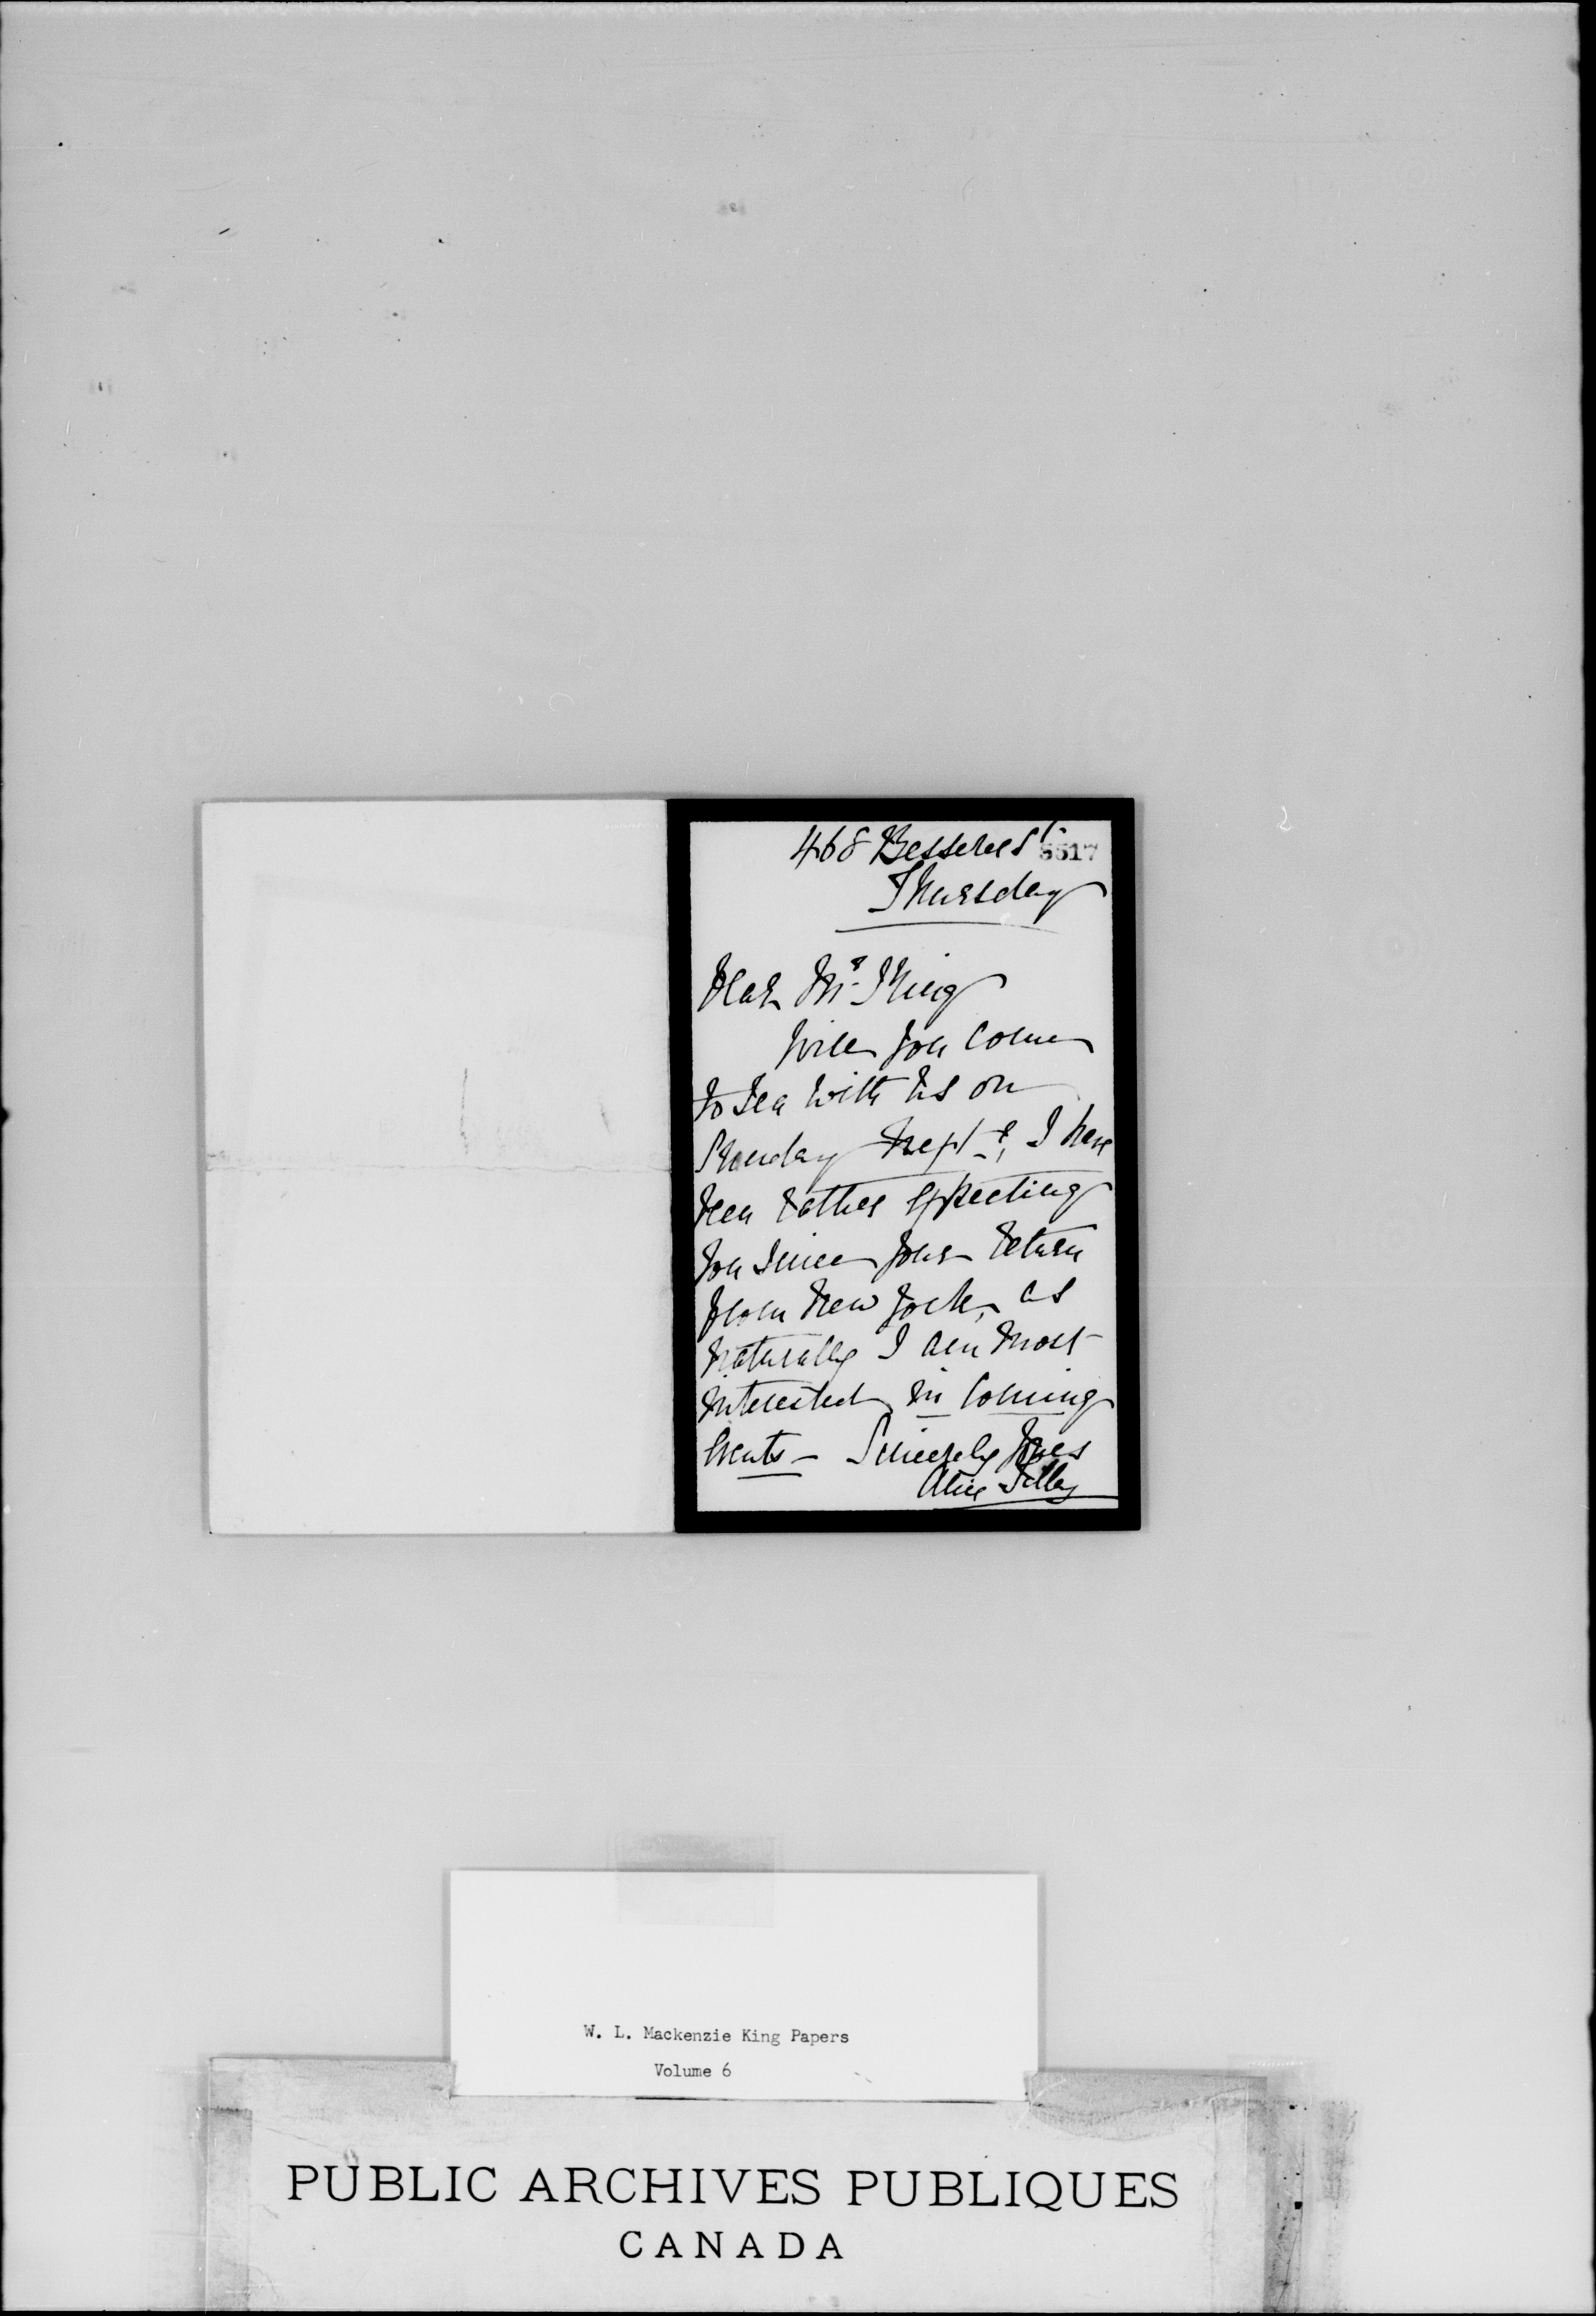 468 Besserer St.
5517
Thursday
Dear Mr. King
Will you come
to tea with us on
Sunday next, I have
been rather expecting
you since your return
from New York, as
naturally I am most
interested in coming
events - Sincerely yours
Alice Tilley
W. L. Mackenzie King Papers
Volume 6
PUBLIC ARCHIVES PUBLIQUES
CANADA